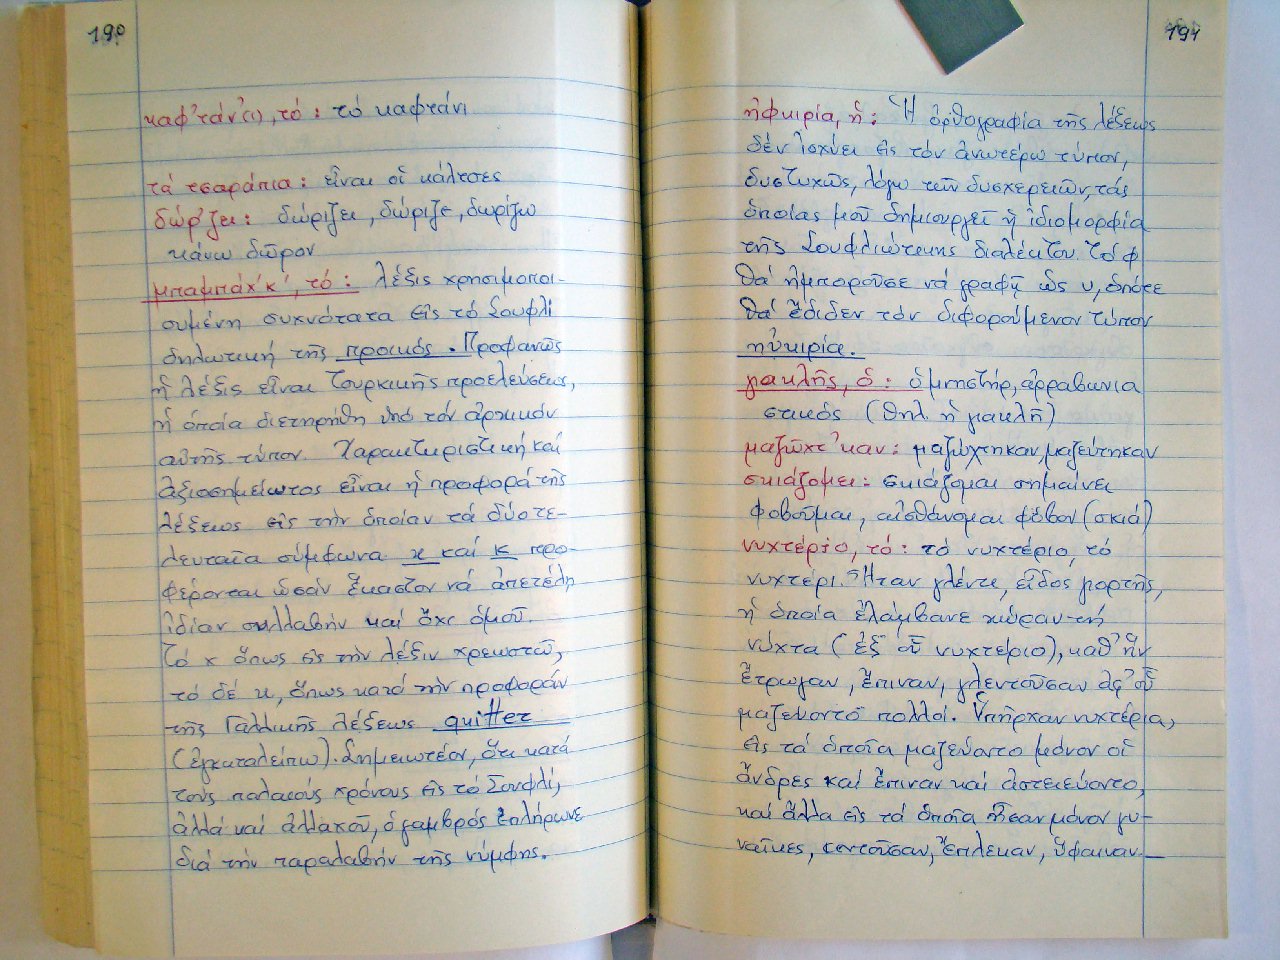 190
καφ'τάν'(ι), τό: τό καφτάνι
τά τσαράπια: εἶναι οἱ κάλτσες
δώρ'ζει: δώριζει, δώριζε, δωρίζω
κάνω δῶρον
μπαμπάχ'κ', τό: λέξις χρησιμοποι-
ουμένη συχνότατα εἰς τό Σουφλί
δηλωτική τῆς προικός. Προφανῶς
ἡ λέξις εἶναι Τουρκικῆς προελεύσεως,
ἡ ὁποία διετηρήθη ὑπό τόν ἀρχικόν
αὐτῆς τύπον. Χαρακτηριστική καί
ἀξιοσημείωτος εἶναι ἡ προφορά τῆς
λέξεως εἰς τήν ὁποίαν τά δύο τε-
λευταῖα σύμφωνα χ καί κ προ-
φέρονται ὡσάν ἕκαστον νά ἀπετέλη
ἰδίαν συλλαβήν καί ὄχι ὁμοῦ.
Τό χ ὅπως εἰς τήν λέξιν χρεωστῶ,
τό δέ κ, ὅπως κατά τήν προφοράν
τῆς Γαλλικῆς λέξεως quitter
(ἐγκαταλείπω). Σημειωτέον, ὅτι κατά
τούς παλαιούς χρόνους εἰς τό Σουφλί,
ἀλλά καί ἀλλαχοῦ, ὁ γαμβρός ἐπλήρωνε
διά τήν παραλαβήν τῆς νύμφης.
191
ηφκιρία, ἡ: Ἡ ὀρθογραφία τῆς λέξεως
δέν ἰσχύει εἰς τόν ἀνωτέρω τύπον,
δυστυχῶς, λόγω τῶν δυσχερειῶν, τάς
ὁποίας μοῦ δημιουργεῖ ἡ ἰδιομορφία
τῆς Σουφλιώτικης διαλέκτου. Τό φ
θά ἠμποροῦσε νά γραφῇ ὡς υ, ὁπότε
θά ἔδιδεν τόν διφορούμενον τύπον
ηὐκιρία.
γακλῆς, ὁ: ὁ μνηστήρ, ἀρραβωνια
στικός (θηλ. ἡ γιακλῆ)
μαζῶχτ'καν: μαζώχτηκαν, μαζεύτηκαν
σκιάζομει: σκιάζομαι σημαίνει
φοβοῦμαι, αἰσθάνομαι φόβον (σκιά)
νυχτέριο, τό: τό νυχτέριο, τό
νυχτέρι. Ἦταν γλέντι, εἶδος γιορτῆς,
ἡ ὁποία ἐλάμβανε χώραν τή
νύχτα (ἐξ οὗ νυχτέριο), καθ' ἥν
ἔτρωγαν, ἔπιναν, γλεντοῦσαν ἀφ' οὗ
μαζεύοντο πολλοί. Ὑπῆρχαν νυχτέρια,
εἰς τά ὁποῖα μαζεύοντο μόνον οἱ
ἄνδρες καί ἔπιναν καί ἀστειεύοντο,
καί ἄλλα εἰς τά ὁποῖα ἦσαν μόνον γυ-
ναῖκες, κεντοῦσαν, ἔπλεκαν, ὕφαιναν.—